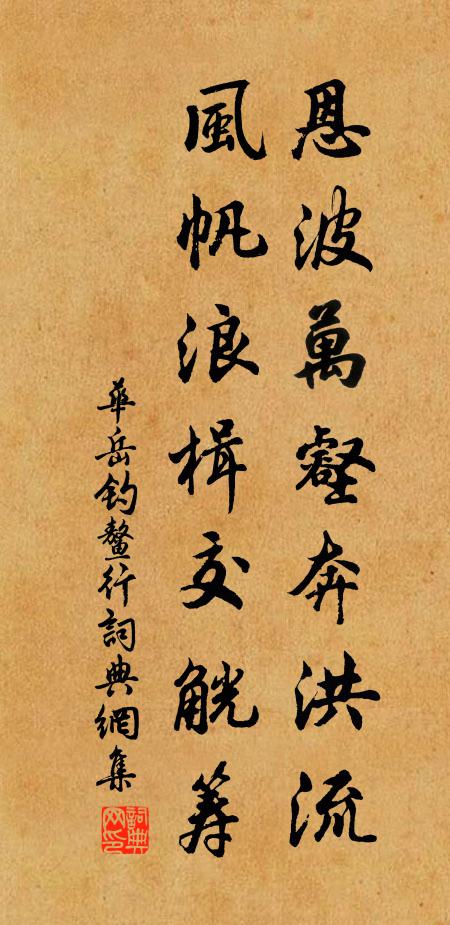 恩波萬壑奔洪流
風帆浪楫交觥筹
華岳釣鰲行詞典網集
詞典網印